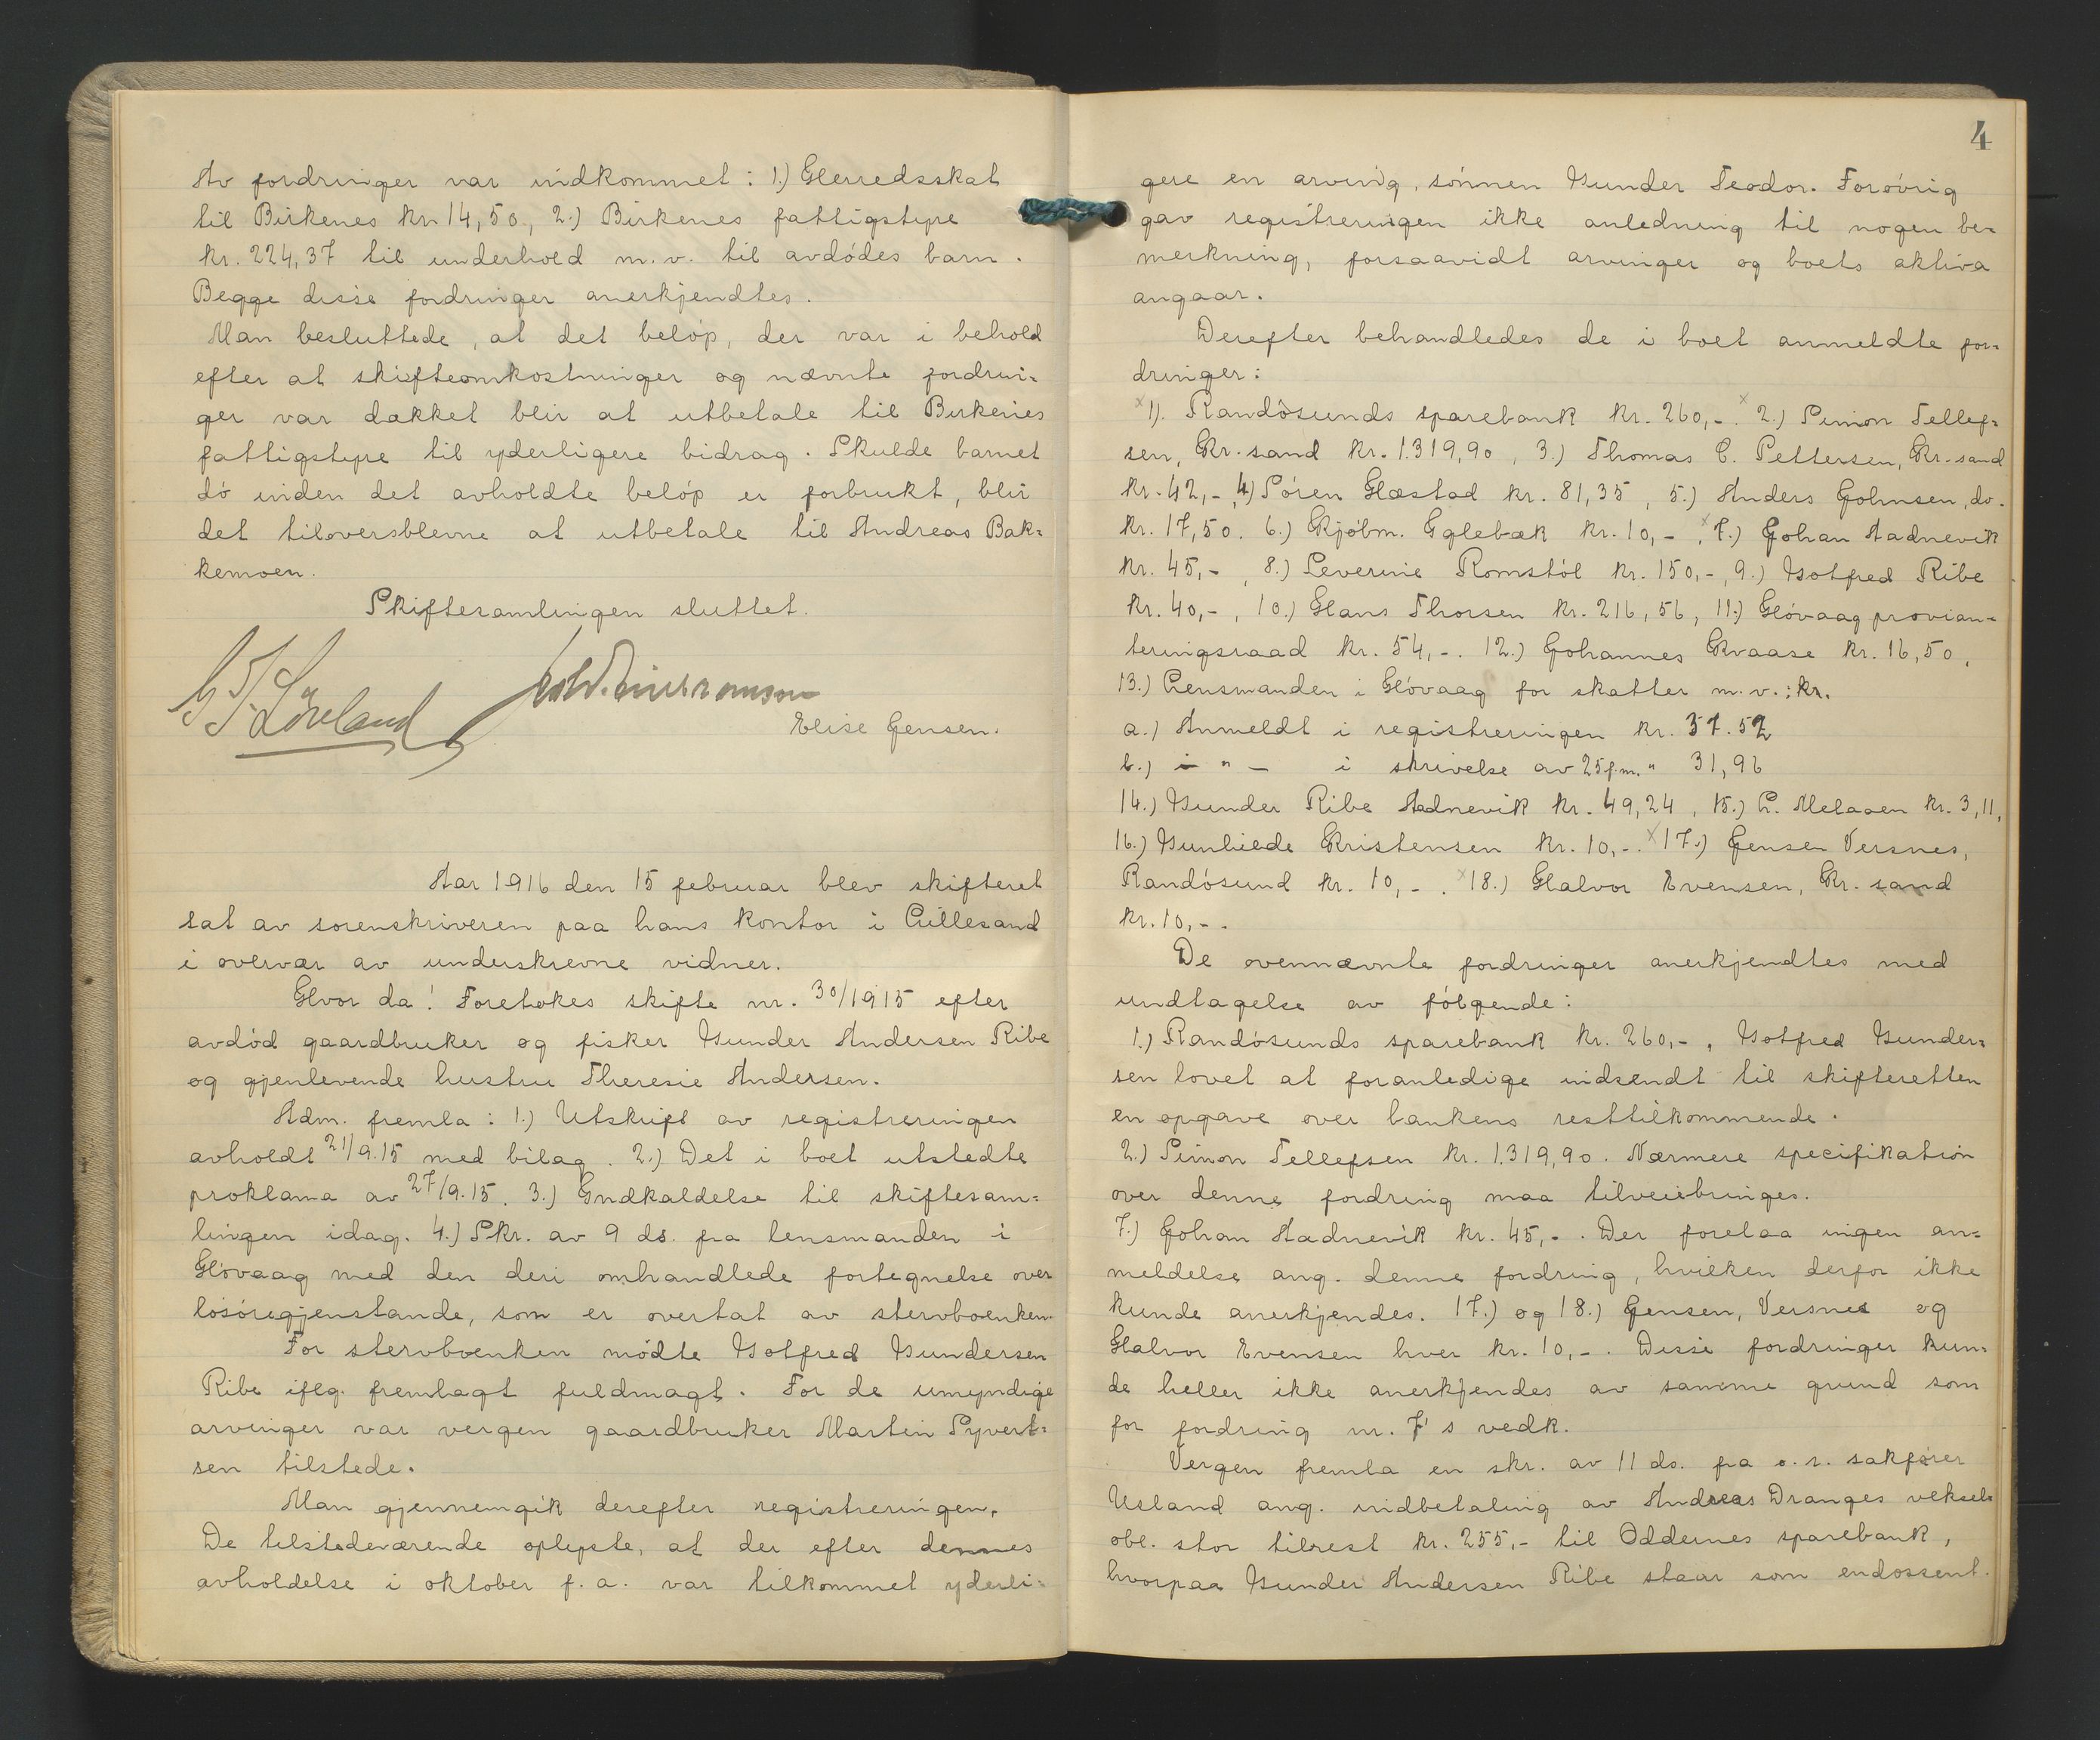 Av fordringer var indkommet: 1.) Herredsskat
til Birkenes kr. 14,50., 2.) Birkenes fattigstyre
kr. 224,37 til underhold m.v. til avdódes barn.
Begge disse fordringer anerkjendtes.
Man besluttede, at det belóp, der var i behold
efter at skifteomkostninger og nævnte fordrin=
ger var dækket blir at utbetale til Birkenes
fattigstyre til yderligere bidrag. Skulde barnet
dó inden det avholdte belóp er forbrukt, blir
det tiloversblevne at utbetale til Andreas Bak=
kemoen.
Skiftesamlingen sluttet.
Lóvland
Elise Jensen.
Aar 1916 den 15 februar blev skifteret
sat av sorenskriveren paa hans kontor i Lillesand
i overvær av underskrevne vidner.
Hvor da! Foretokes skifte nr. 30/1915 efter
avdód gaardbruker og fisker Gunder Andersen Ribe
og gjenlevende hustru Theresie Andersen.
Adm. fremla: 1.) Utskrift av registreringen
avholdt 21/9.15 med bilag. 2.) Det i boet utstedte
proklama av 27/9.15. 3.) Indkaldelse til skiftesam=
lingen idag. 4.) Skr. av 9 ds. fra lensmanden i
Hóvaag med den deri omhandlede fortegnelse over
lósóregjenstande, som er overtat av stervboenken.
For stervboenken módte Gotfred Gundersen
Ribe iflg. fremlagt fuldmagt. For de umyndige
arvinger var vergen gaardbruker Martin Syvert=
sen tilstede.
Man gjennemgik derefter registreringen.
De tilstedeværende oplyste, at der efter dennes
avholdelse i oktober f.a. var tilkommet yderli=
4
gere en arving, sónnen Gunder Teodor. Foróvrig
gav registreringen ikke anledning til nogen be=
merkning, forsaavidt arvinger og boets aktiva
angaar.
Derefter behandledes de i boet anmeldte for=
dringer:
x 1). Randósunds sparebank kr. 260,-. x 2.) Simon Tellef=
sen, Kr.sand kr. 1.319,90, 3.) Thomas C. Pettersen, Kr.sand
kr. 42,-, 4) Sóren Hæstad kr. 81,35, 5.) Anders Johnsen, do.
kr. 17,50. 6.) Kjóbm. Iglebæk kr. 10,-, x 7.) Johan Aadnevik
kr. 45,-, 8.) Severine Romstól kr. 150,-, 9.) Gotfred Ribe
kr. 40,-, 10.) Hans Thorsen kr. 216,56, 11.) Hóvaag provian=
teringsraad kr. 54,-. 12.) Johannes Kvaase kr. 16,50,
13.) Lensmanden i Hóvaag for skatter m.v.: kr.
a.) Anmeldt i registreringen kr. 37.52
b.) - " - i skrivelse av 25 f.m. " 31,96
14.) Gunder Ribe Aadnevik kr. 49,24, 15.) L. Melaaen kr. 3,11,
16.) Gunhilde Kristensen kr. 10,-. x 17.) Jensen Versnes,
Randósund kr. 10,-. x 18.) Halvor Evensen, Kr.sand
kr. 10,-.
De ovennævnte fordringer anerkjendtes med
undtagelse av fólgende:
1.) Randósunds sparebank kr. 260,-, Gotfred Gunder=
sen lovet at foranledige indsendt til skifteretten
en opgave over bankens resttilkommende.
2.) Simon Tellefsen kr. 1.319,90. Nærmere specifikation
over denne fordring maa tilveiebringes.
7.) Johan Aadnevik kr. 45,-. Der forelaa ingen an=
meldelse ang. denne fordring, hvilken derfor ikke
kunde anerkjendes. 17.) og 18.) Jensen, Versnes og
Halvor Evensen hver kr. 10,-. Disse fordringer kun=
de heller ikke anerkjendes av samme grund som
for fordring nr. 7's vedk.
Vergen fremla en skr. av 11 ds. fra o.r. sakfører
Usland ang. indbetaling av Andreas Dranges veksel
obl. stor tilrest kr. 255,- til Oddernes sparebank,
hvorpaa Gunder Andersen Ribe staar som endossent.